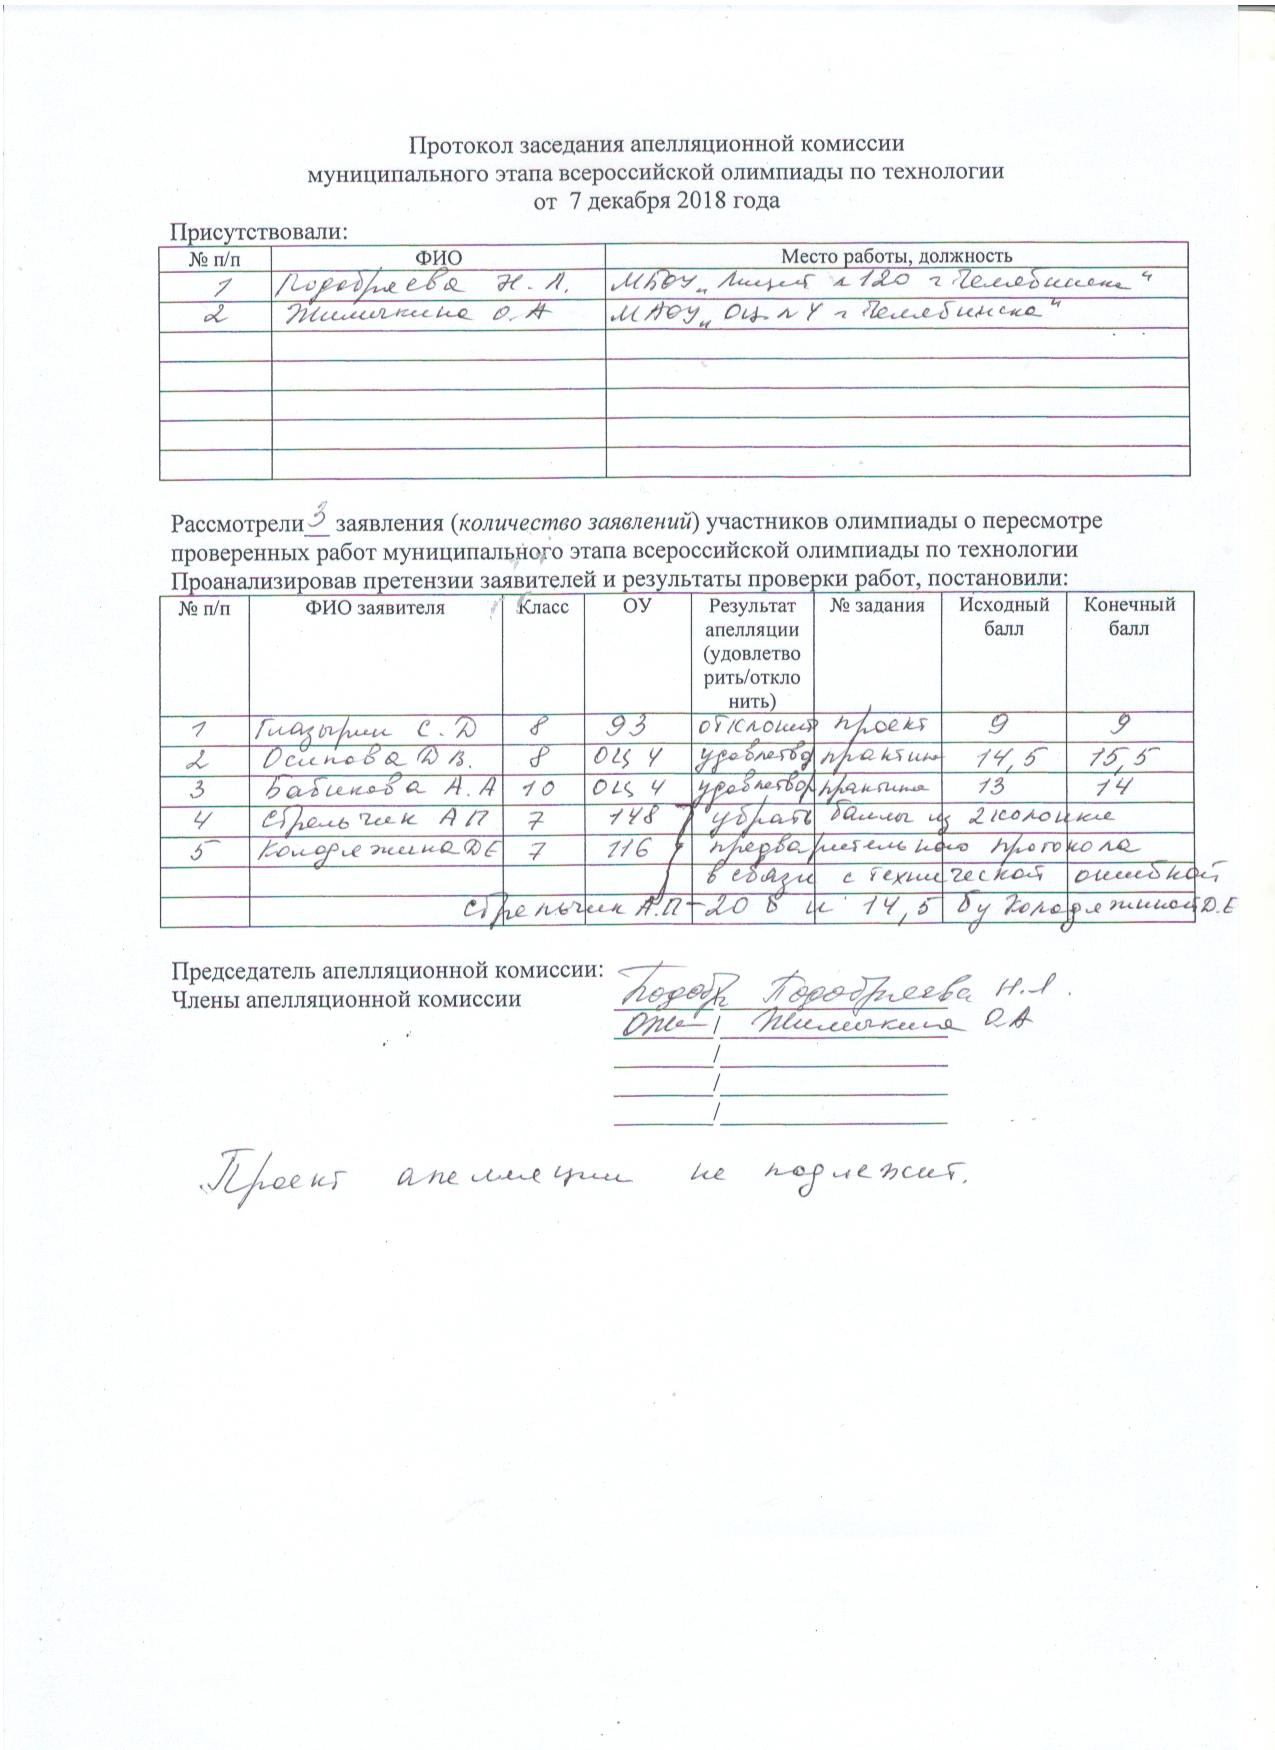 Протокол заседания апелляционной комиссии
муниципального этапа всероссийской олимпиады по технологии
от 7 декабря 2018 года
Присутствовали:
№ п/п ФИО Место работы, должность
1 Подобряева Н.Л. МБОУ „Лицей №120 г Челябинска"
2 Жимичкина О.А МАОУ „ОЦ №4 г Челябинска"
Рассмотрели 3 заявления (количество заявлений) участников олимпиады о пересмотре
проверенных работ муниципального этапа всероссийской олимпиады по технологии
Проанализировав претензии заявителей и результаты проверки работ, постановили:
№ п/п ФИО заявителя Класс ОУ Результат № задания Исходный Конечный
апелляции балл балл
(удовлетво
рить/откло
нить)
1 Глазырин С.Д 8 93 отклонит проект 9 9
2 Осипова Д В. 8 ОЦ 4 удовлетво практика 14,5 15,5
3 Бабикова А.А 10 ОЦ 4 удовлетвор практика 13 14
4 Стрельчик А П 7 148 убрать баллы из 2 колонки
5 Колодяжина Д Е 7 116 предварительного протокола
в связи с технической ошибкой
Стрельчик А.П - 20 б и 14,5 б у Колодяжиной Д.Е
Председатель апелляционной комиссии:
Подобряева Н.Л.
Члены апелляционной комиссии
/ Жимичкина О.А
/
/
/
Проект апелляции не подлежит.